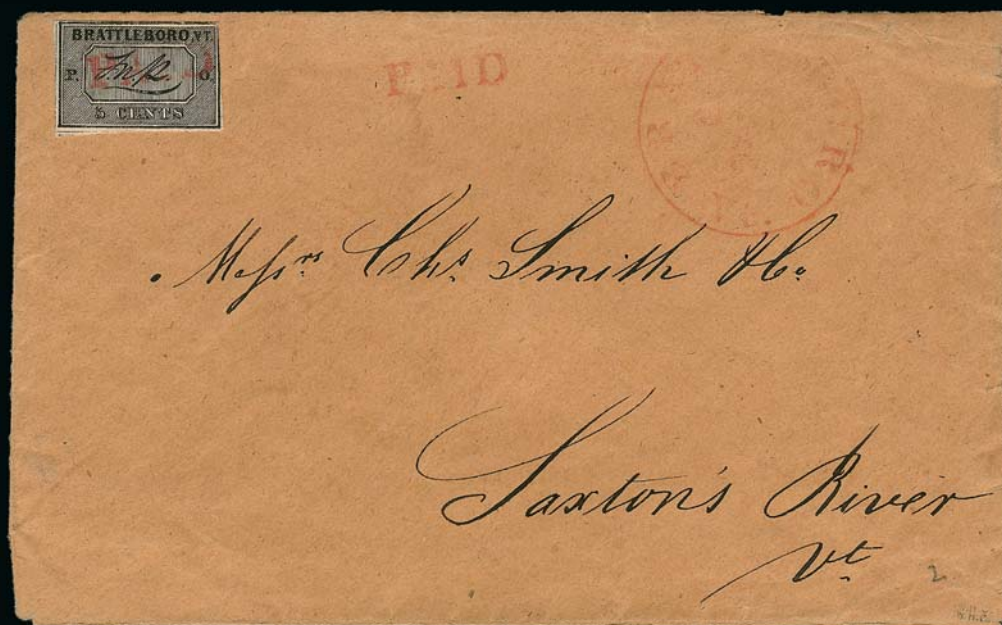 BRATTLEBORO, VT.
P. O.
5 CENTS
PAID
Messrs Chs Smith & Co
Saxton's River
Vt
2